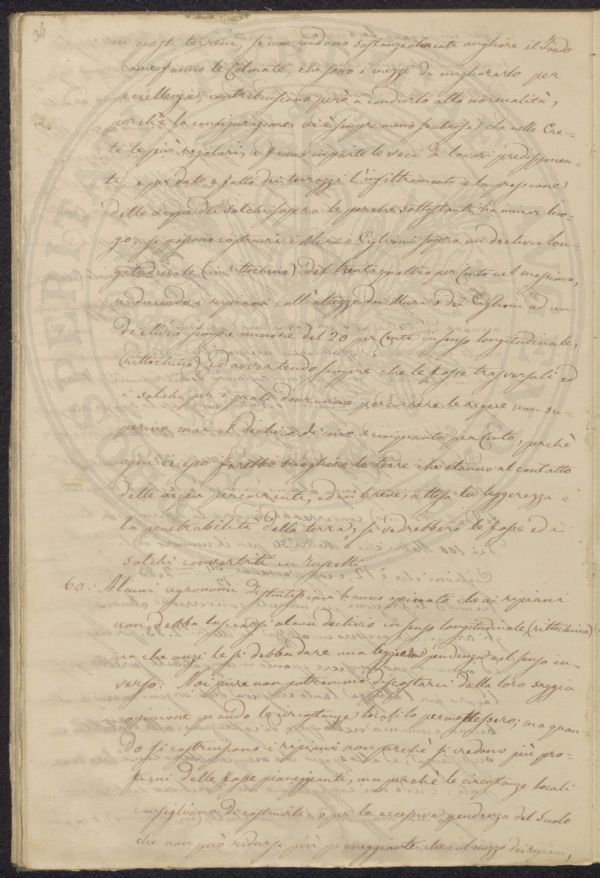 36
in questi terreni, se non rendono sostanzialmente migliore il Fondo
come fanno le Colmate, che sono i mezzi da migliorarlo per
eccellenza, contribuiscono però a condurlo alla normalità,
perchè la configurazione vi è sempre meno che nelle Cre-
te le più regolari, e fanno in parte le veci di lavori predisponen-
ti, e per dato e fatto dei terrazzi l'infiltramento e la pressione
delle acque dei solchi sopra le porche sottostanti ha minor luo-
go. Si possono costruire i Muri e Ciglioni sopra un declivio lon-
gitudinale (rittochino) del trentaquattro per Cento nel massimo,
riducendo i ripiani coll'altezza dei Muri o dei Ciglioni ad un
declivio sempre minore del 20 per Cento in senso longitudinale,
(rittochino) ed avvertendo sempre che le fosse trasversali ed
i solchi per i quali dovranno percorrere le acque non su-
perino mai il declivio di uno e cinquanta per Cento, perchè
ogni eccesso farebbe sciogliere le terre che stanno al contatto
delle acque percorrenti, ed in breve, attesa la leggerezza e
la penetrabilità della terra, si vedrebbero le fosse ed i
solchi convertiti in
60. Alcuni agronomi distintissimi hanno opinato che ai ripiani
non debba lasciarsi alcun declivio in senso longitudinale (rittochino)
ma che anzi le si debba dare una leggiera pendenza nel senso in-
verso. Noi pure non potremmo discostarci dalla loro saggia
opinione quando le circostanze locali lo permettessero; ma quan-
do si costruiscono i ripiani non perchè si vedano più pro-
ficui delle fosse pianeggianti, ma perchè le circostanze locali
consigliano di costruirli, o per la eccessiva pendenza del Suolo
che non può ridursi più pianeggiante che col mezzo dei ripiani,